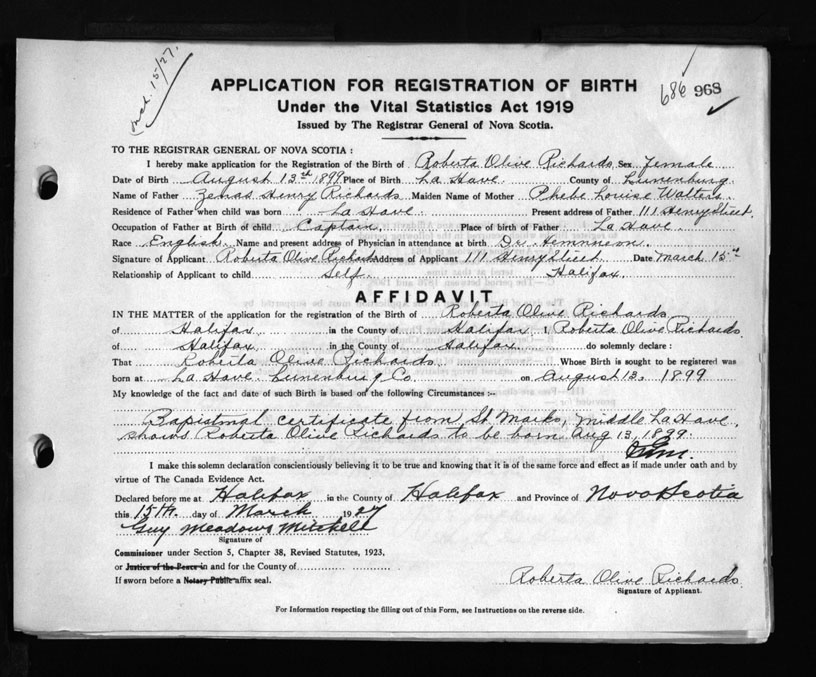 mch. 15/27.
APPLICATION FOR REGISTRATION OF BIRTH
686 968
Under the Vital Statistics Act 1919
Issued by The Registrar General of Nova Scotia.
TO THE REGISTRAR GENERAL OF NOVA SCOTIA :
I hereby make application for the Registration of the Birth of Roberta Olive Richards Sex Female
Date of Birth August 13th 1899 Place of Birth La Have County of Lunenburg
Name of Father Zenas Henry Richards Maiden Name of Mother Phebe Louise Walters
Residence of Father when child was born La Have Present address of Father 111 Henry Street,
Occupation of Father at Birth of child Captain Place of birth of Father La Have
Race English Name and present address of Physician in attendance at birth Dr.
Signature of Applicant Roberta Olive Richards Address of Applicant 111 Henry Street Date March 15th
Relationship of Applicant to child Self. Halifax.
AFFIDAVIT
IN THE MATTER of the application for the registration of the Birth of Roberta Olive Richards
of Halifax in the County of Halifax I, Roberta Olive Richards
of Halifax in the County of Halifax do solemnly declare :
That Roberta Olive Richards Whose Birth is sought to be registered was
born at La Have Lunenburg Co. on August 13, 1899
My knowledge of the fact and date of such Birth is based on the following Circumstances :-
Bapistmal certificate from St Marks, Middle LaHave,
shows Roberta Olive Richards to be born Aug 13, 1899.
I make this solemn declaration conscientiously believing it to be true and knowing that it is of the same force and effect as if made under oath and by
virtue of The Canada Evidence Act.
Declared before me at Halifax in the County of Halifax and Province of Nova Scotia
this 15th day of March 1927
Guy Meadows Mitchell
Signature of
Commissioner under Section 5, Chapter 38, Revised Statutes, 1923,
or Justice of the Peace in and for the County of
If sworn before a Notary Public affix seal.
Roberta Olive Richards
Signature of Applicant.
For Information respecting the filling out of this Form, see Instructions on the reverse side.